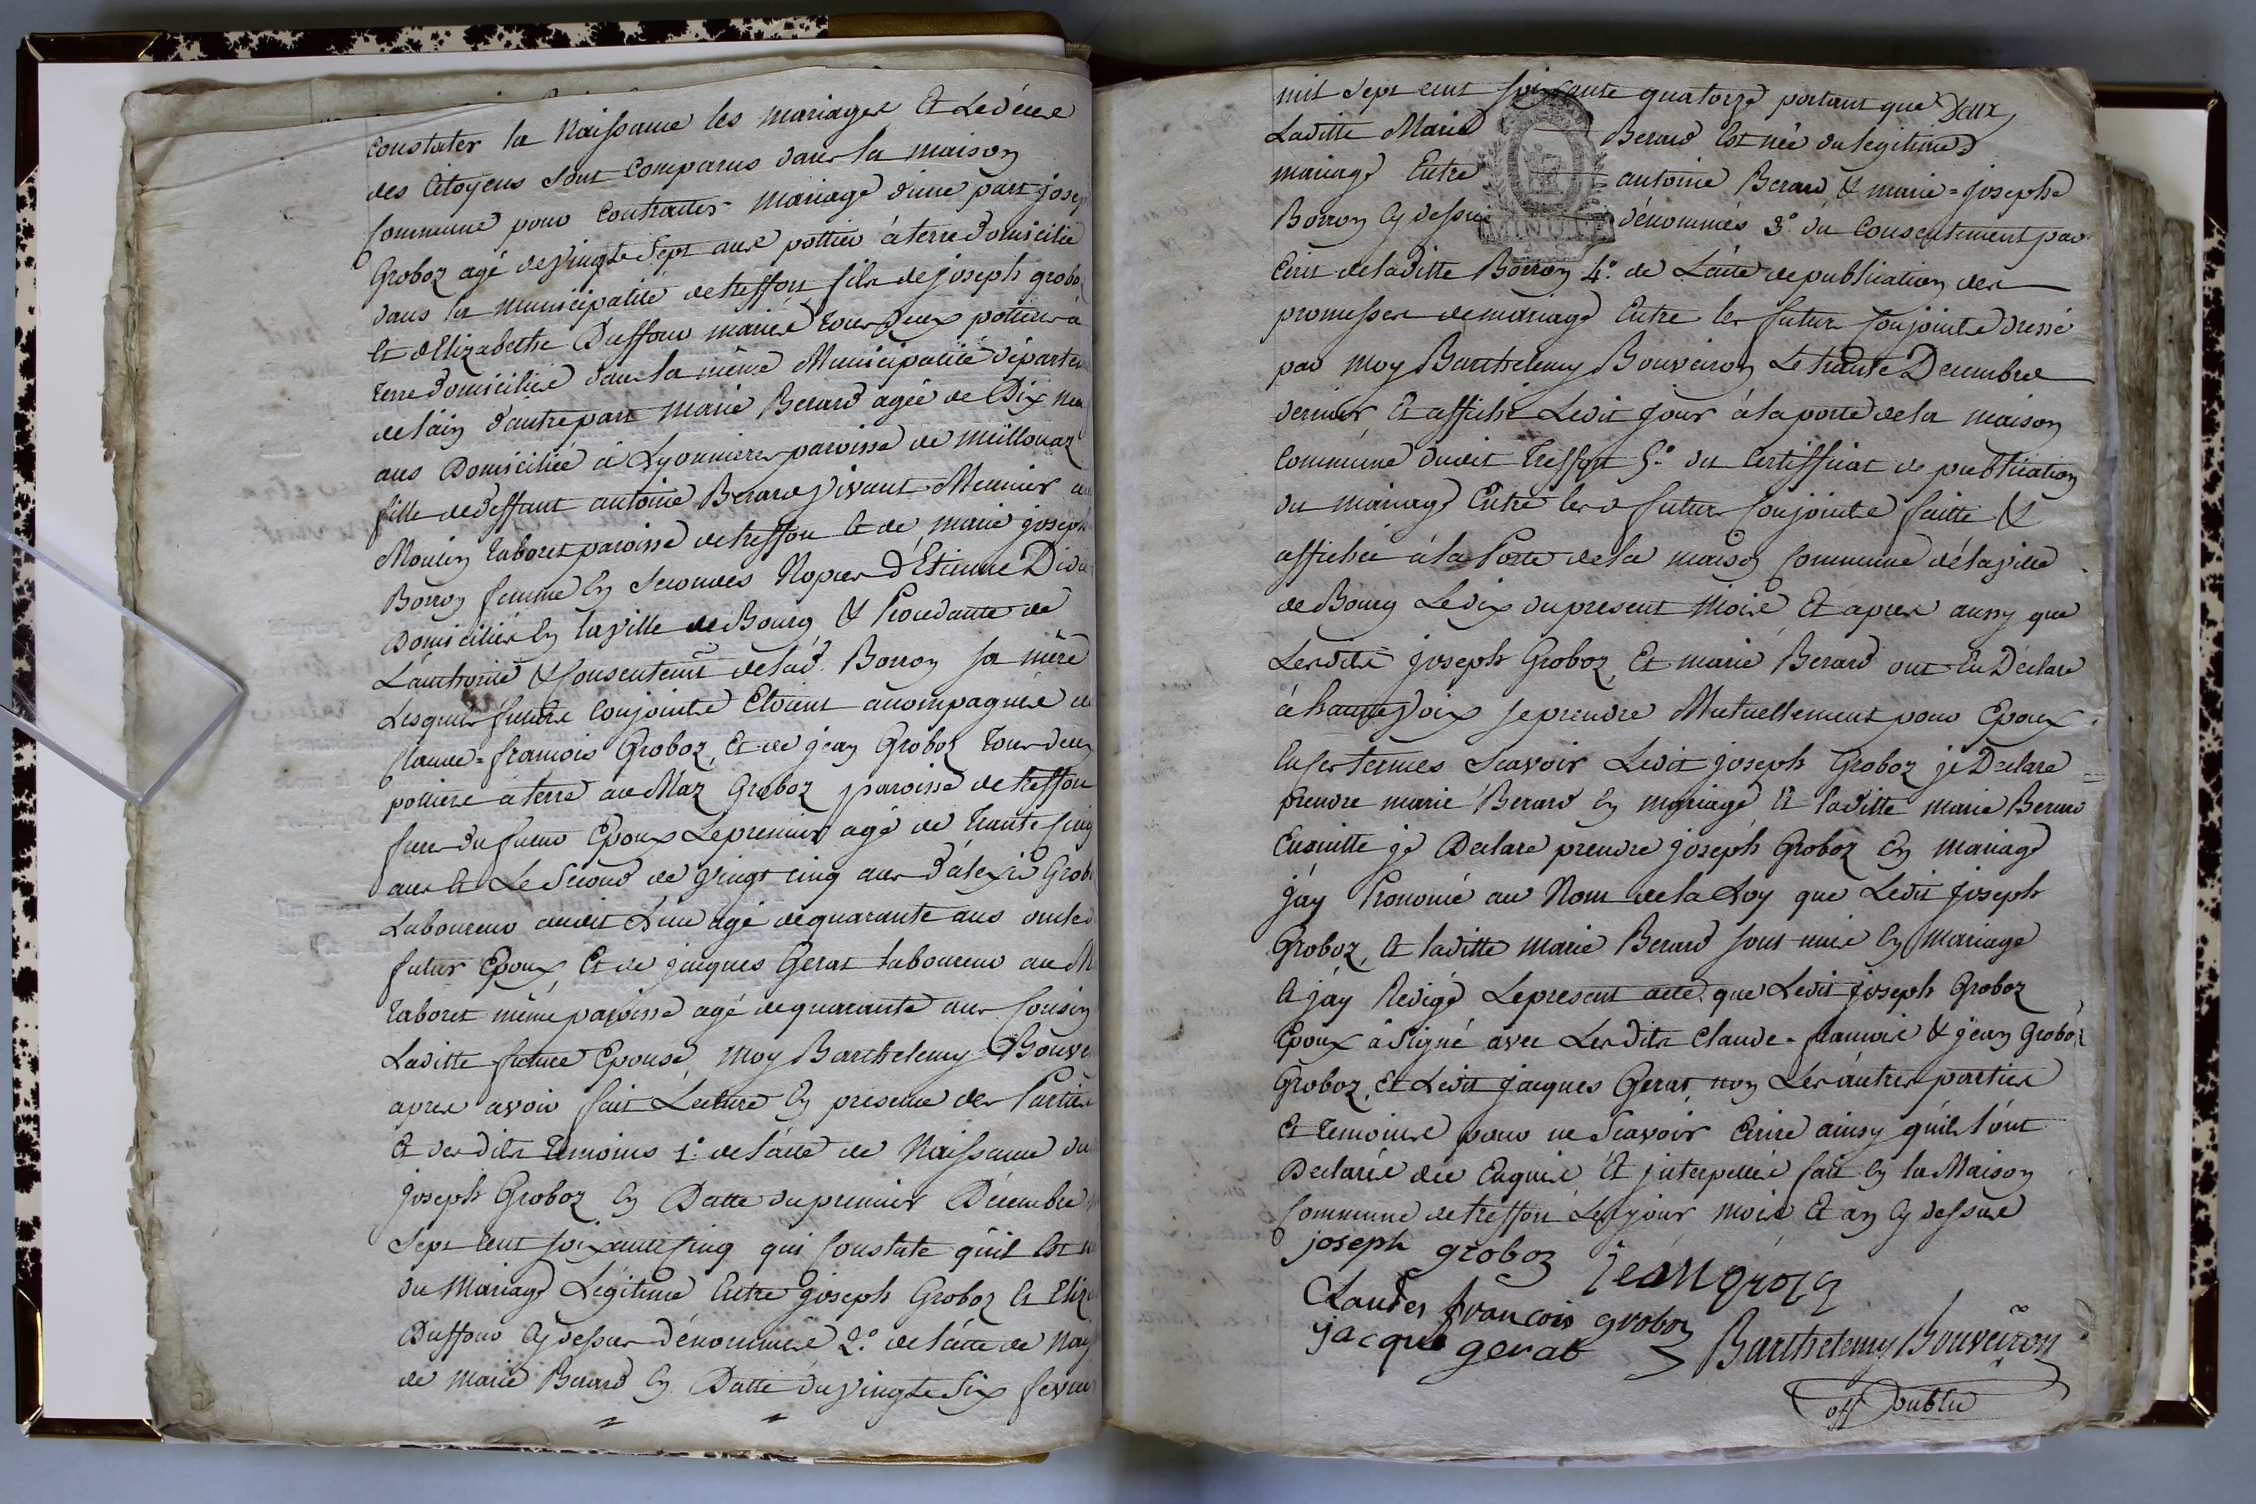 constater la Naissance les mariages Et Le décè
des Citoyens Sont Comparus dans la maison
Commune pour Contracter mariage d'une part josep
Groboz agé de vingt Sept ans pottier à terre domicilié
dans la municipalité de treffort fils de joseph grobo
Et d'Elizabethe Duffour mariés tous deux pottiers à
terre domiciliés dans la même Municipalité départem
de l'ain d'autre part marie Berard agée de Dix neu
ans Domiciliée à Lyonnieres paroisse de meillonaz
fille de deffunt antoine Berard vivant Meunier au
Moulin taboret paroisse de treffort Et de marie joseph
Borron femme En Secondes Nopces d'Etienne
Domiciliés En la ville de Bourg & Procedante de
L'authorité & Consentemt. de lad. Borron sa mère
Lesquels futurs Conjoints Etoient acompagnés de
Claude=françois Groboz, Et de jean Groboz tous deux
pottiers à terre au Maz Groboz paroisse de treffort
freres du futur Epoux Le premier agé de trante cinq
ans Et Le Second de vingt cinq ans d'alexis Grobo
Laboureur audit Lieu agé de quarante ans oncle d
futur Epoux, Et de jacques Gerat laboureur au M
taboret même paroisse agé de quarante ans Cousin
Laditte future Epouse, moy Barthelemy Bouve
apres avoir fait Lecture En presence des Parties
Et desdits temoins 1.° de l'acte de Naissance du
joseph Groboz En Datte du premier Décembre
Sept cent soixante cinq qui Constate qu'il Est n
du Mariage Légitime Entre joseph Groboz Et Eliz
Duffour Cy dessus dénommés 2.° de l'acte de Nais
de marie Berard En Datte du vingt Six fevrie
mil Sept cent soixante quatorze portant que
Laditte Marie Berard Est née du legitime
mariage Entre antoine Berard & marie=josephe
Borron Cy dessus dénommés 3.° du Consentement par
Ecrit de laditte Borron 4.° de L'acte de publication des
promesses de mariage Entre les futurs Conjoints dressé
par moy Barthelemy Bouveiron Le trante Decembre
dernier, Et affiché Ledit jour à la porte de la maison
Commune dudit treffort 5.° du Certifficat de publication
du mariage Entre les futurs Conjoints faitte &
affichée à la Porte de la maison Commune de la ville
de Bourg Le dix du present Mois, Et apres aussy que
Lesdits joseph Groboz, Et marie Berard ont Eu Déclaré
à haute Voix se prendre Mutuellement pour Epoux
En ses termes Scavoir Ledit joseph Groboz je Declare
prendre marie Berard En mariage Et laditte marie Berard
Ensuitte je Declare prendre joseph Groboz En mariage
j'ay Prononcé au Nom de la Loy que Ledit joseph
Groboz, Et laditte marie Berard sont unis En Mariage
Et j'ay Redigé Le present acte que Ledit joseph Groboz
Epoux à Signé avec Lesdits Claude=françois & jean Groboz
Groboz, Et Ledit jacques Gerat, non Les autres parties
Et temoins pour ne Scavoir Ecrire ainsy qu'ils l'ont
Declarés de ce Enquis Et interpellés fait En la Maison
Commune de treffort Les jour mois Et an Cy dessus
MINUTE
joseph groboz jean
Claudes francois groboz
jacque gerat Barthelemy Bouveiron
off public